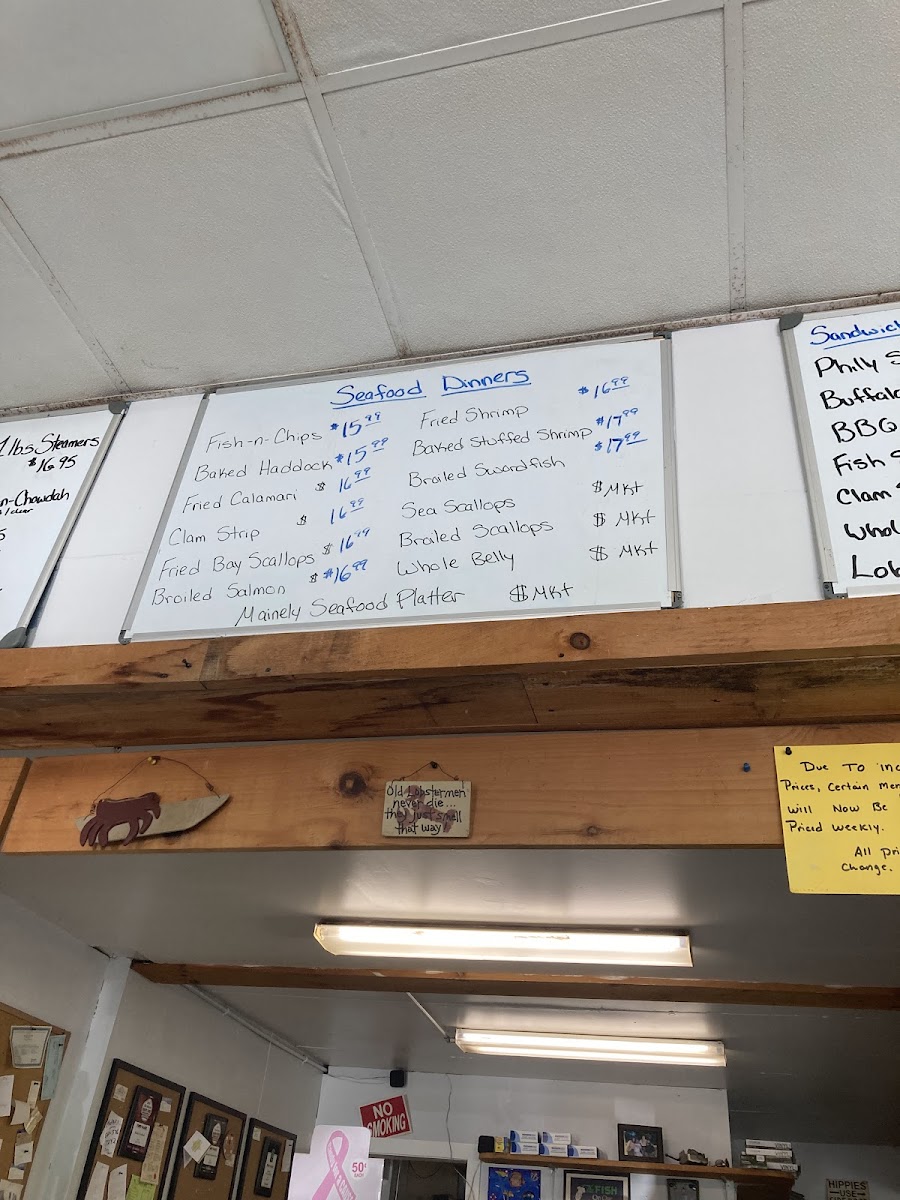 1 lbs Steamers
$16.95
n-Chowdah
Seafood Dinners
Fish-n-Chips $15.99
Baked Haddock $15.99
Fried Calamari $ 16.99
Clam Strip $ 16.99
Fried Bay Scallops $ 16.99
Broiled Salmon $ $16.99
Fried Shrimp $16.99
Baked Stuffed Shrimp $17.99
Broiled Swordfish $17.99
Sea Scallops $ MKt
Broiled Scallops $ MKt
Whole Belly $ MKt
Mainely Seafood Platter $ MKt
Sandwich
Philly S
Buffalo
BBQ
Fish S
Clam S
Whol
Lob
Old Lobstermen
never die...
they just smell
that way!
Due To inc
Prices, Certain Men
Will Now Be
Priced Weekly.
All pri
Change.
NO
SMOKING
50¢
FISH
HIPPIES
USE